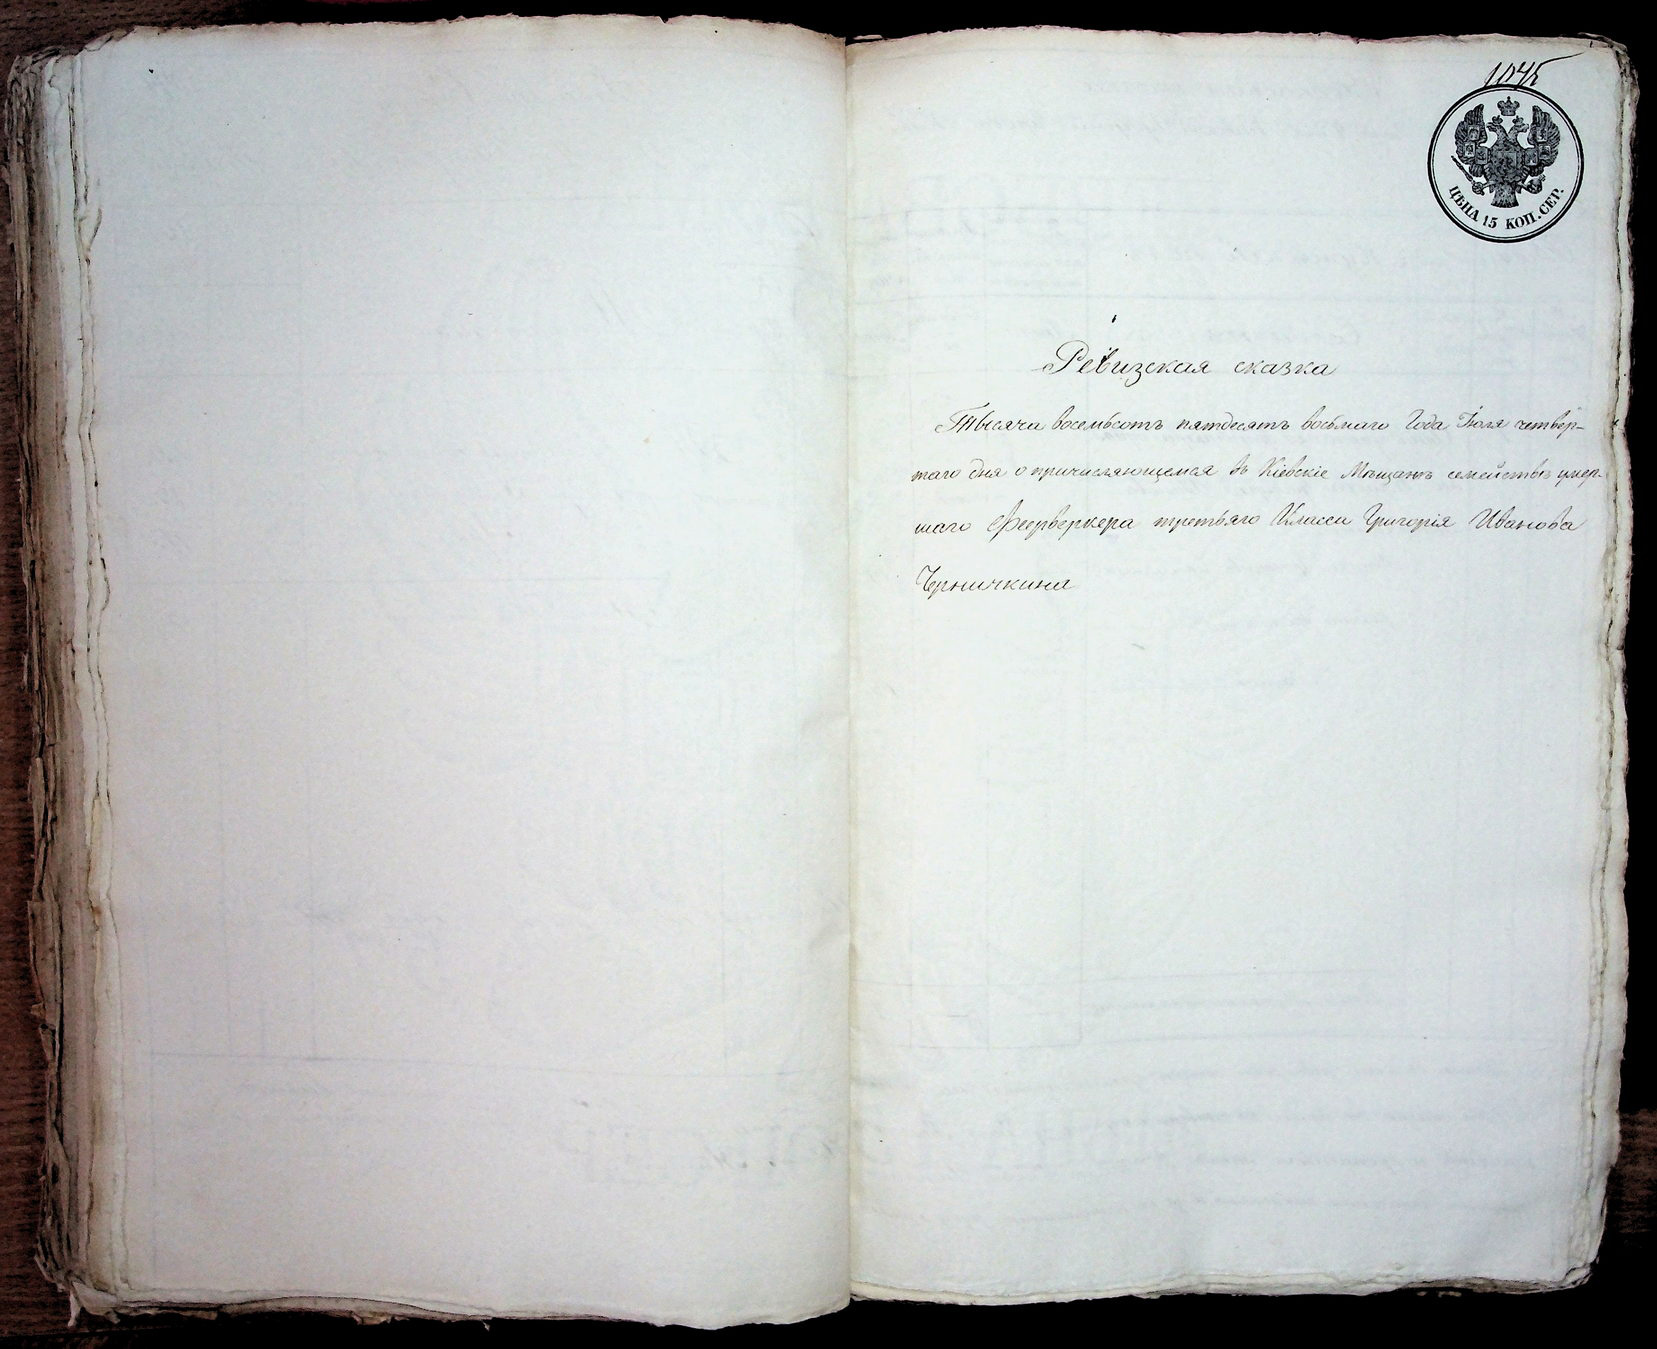 1045
ЦѢНА 15 КОП. СЕР.
Ревизская сказка
Тысяча восемьсотъ пятдесятъ восьмаго Года Іюля четвер-
таго дня о причисляющемся въ Кіевскіе Мѣщане семействѣ умер-
шаго Феерверкера третьяго Класса Григорія Иванова
Черничкина